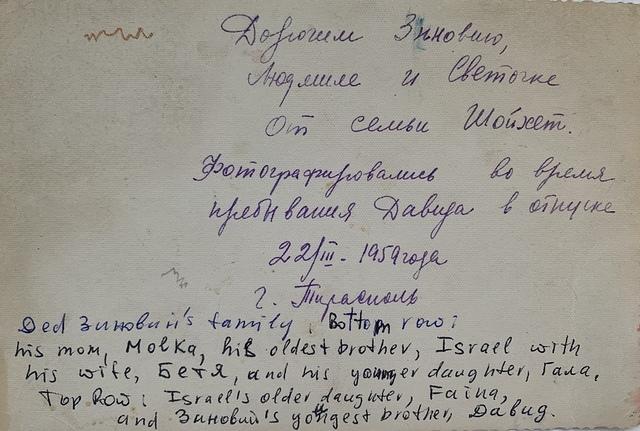 Дорогим Зиновию,
Людмиле и Светочке
От семьи Шойхет.
Фотографировались во время
пребывания Давида в отпуске
22/III - 1959 года
г. Тирасполь
Ded Зиновий's family. Bottom row:
his mom, Molka, his oldest brother, Israel with
his wife, Бетя, and his younger daughter, Гала,
Top Row: Israel's older daughter, Faina,
and Зиновий's youngest brother, Давид.